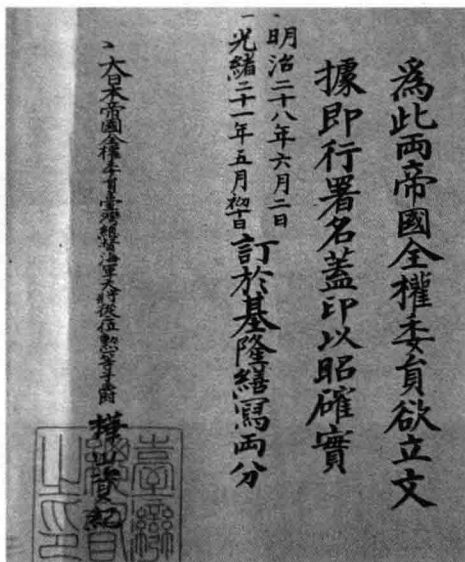 為此両帝國全權委員欲立文
據即行署名蓋印以昭確實
明治二十八年六月二日
光緒二十一年五月初十日
訂於基隆繕寫両分
大日本帝國全權委員臺灣總督海軍大將從二位勲一等子爵
樺山資紀
臺灣總督之印